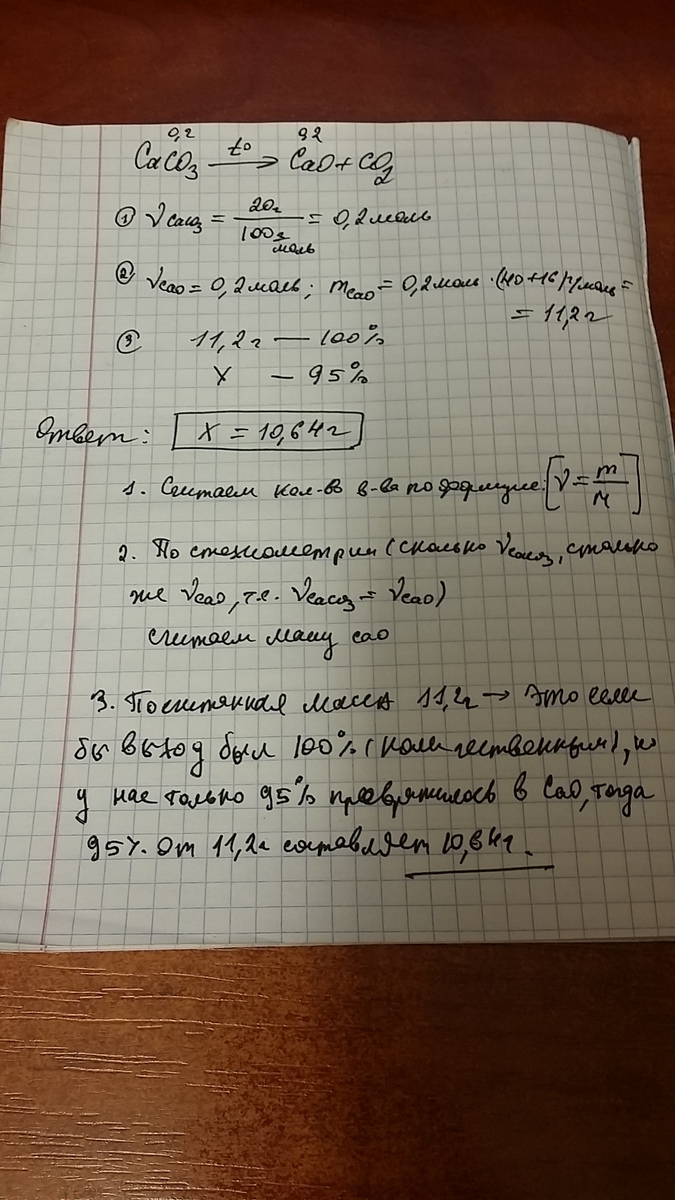 0,2 0,2
CaCO3 t° → CaO + CO2
① νCaCO3 = 20г / 100 г/моль = 0,2 моль
② νCaO = 0,2 моль; mCaO = 0,2 моль · (40+16) г/моль =
= 11,2 г
③ 11,2 г — 100%
X — 95%
Ответ: X = 10,64 г
1. Считаем кол-во в-ва по формуле: [ν = m/M]
2. По стехиометрии (сколько νCaCO3, столько
же νCaO, т.е. νCaCO3 = νCaO)
считаем массу CaO
3. Посчитанная масса 11,2г → это если
бы выход был 100% (количественным), но
у нас только 95% превратилось в CaO, тогда
95% от 11,2г составляет 10,64г.